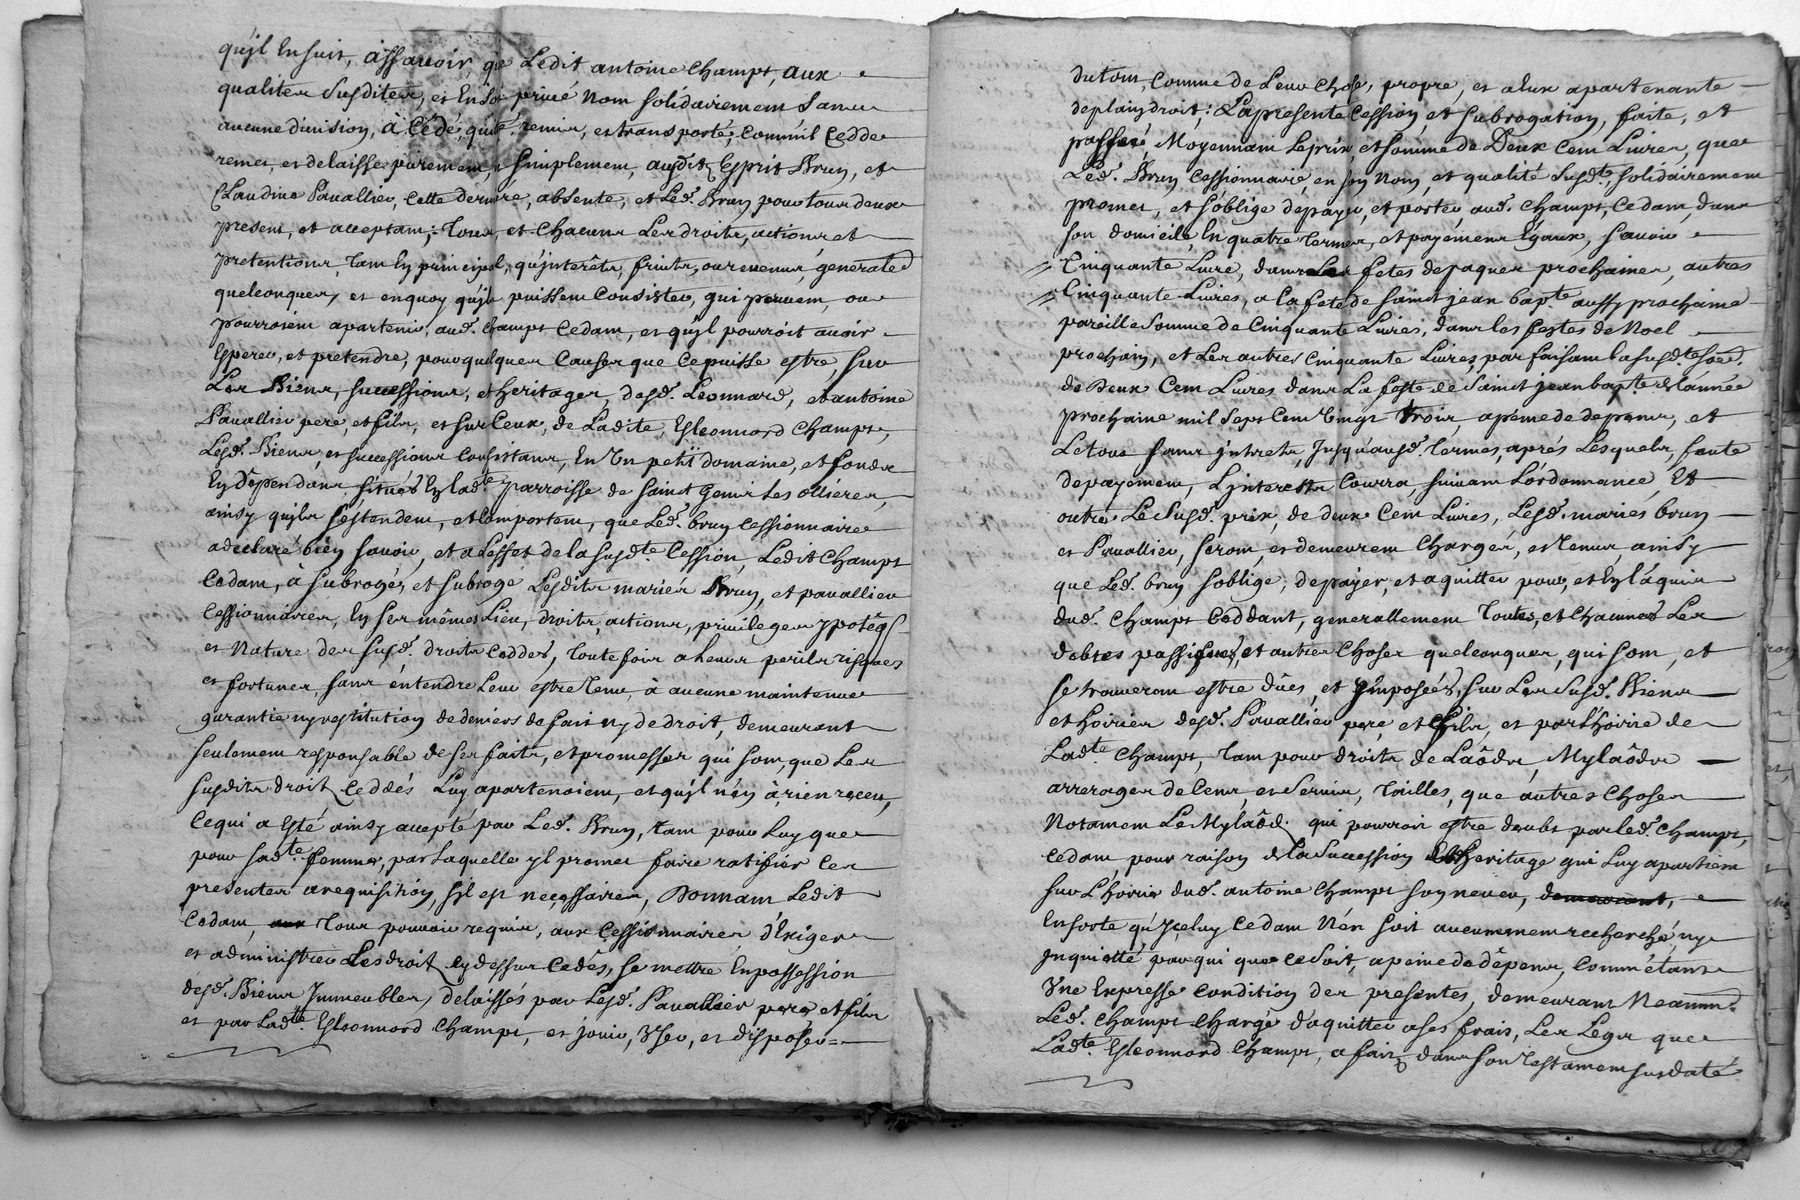 qu'jl En suit, assavoir, que Ledit antoine Champt, aux
qualites Susdites, et En son privé Nom solidairement sans
aucune division, à Cédé, quité, remis, et transporté, comm'il Cedde
remet, et delaisse purement, & simplement, audit Esprit Brun, et
Claudine Pavallier, Cette derniere, absente, et Led. Brun pour tous deux
present, et acceptant; Tous, et Chacuns Les droits, actions et
pretentions, tant En principal, qu'jnterêts, fruits, ou revenus, generalle
quelconques, et en quoy qu'jls puissent Consister, qui peuvent, ou
pourroient apartenir, aud. Champt Cedant, et qu'jl pourroit avoir
Esperer, et pretendre, pour quelques Causes que Ce puisse estre, sur
Les Biens, successions, et heritages, desd. Leonnard, et antoine
Pavallier pere, et fils, et sur Ceux, de Ladite, Esleonnord Champt,
Lesd. Biens, et successions Consistans, En Un petit domaine, et fonds
En Dependans, situés En lad.te parroisse de Saint Genis Les ollieres,
ainsy qu'jls s'estendent, et Comportent, que Led. brun Cessionnaire
a declaré bien savoir, et à L'effet de la susd.te Cession, Ledit Champt
Cedant, à subrogés, et subroge Lesdits mariés Brun, et pavallier
Cessionnaires, En ses mêmes Lieu, droits, actions, privileges ypoteqs
et Nature des susd. droits Ceddés, Toutefois a Leurs perils risques
et fortunes, sans entendre Leur estre Tenu, à aucune maintenue
garantie ny restitution de deniers de fait ny de droit, demeurant
seulement responsable de ses faits, et promesses qui sont, que Les
susdits droits Ceddés Luy apartenoient, et qu'jl n'en à rien receu,
Ce qui a Esté ainsy accepté par Led. Brun, tant pour Luy que
pour sad.te femme, par Laquelle jl promet faire ratiffier Ces
presentes a requisition, s'jl est necessaire, Donnant Ledit
Cedant, Tous pouvoir requis, aux Cessionnaires d'Exiger
et administrer Lesdroits cy dessus Cedés, se mettre En possession
desd. Biens Jmmeubles, delaissés par Lesd. Pavallier pere, et fils
et par Lad.te Esleonnord Champt, et jouir, User, et disposer
du tout, Comme de Leur Chose, propre, et a Eux apartenante
de plain droit; La presente Cession, et subrogation, faite, et
passée Moyennant Le prix, et somme de Deux Cent Livres, que
Led. Brun Cessionnaire, en son Nom, et qualité Susd.te, solidairement
promet, et s'oblige de payer, et porter, aud. Champt, Cedant, dans
son domicile, En quatre Termes, et payemens Egaux, savoir
Cinquante Livre, dans Les fetes de paques prochaines, autres
Cinquante Livres, a la fete de saint jean bap.te aussy prochaine
pareille Somme de Cinquante Livres, dans les festes de Noel
prochain, et Les autres cinquante Livres, parfaisant la susd.te soe.
de Deux Cent Livres dans La feste de Saint jean bap.te de l'année
prochaine mil Sept Cent Vingt trois, a peine de depens, et
Le tout sans jnterets, Jusqu'ausd. Termes, aprés Lesquels, faute
de payement, L'jnterest Courra, suivant L'ordonnance, Et
outre Le Susd. prix, de deux Cent Livres, Lesd. mariés brun
et Pavallier, seront, et demeurent Chargés, et Tenus ainsy
que Led. brun s'oblige, de payer, et aquitter pour, et En l'aquit
dud. Champt Ceddant, generallement Toutes, et Chacunes Les
debtes passifues, et autres Choses quelconques, qui sont, et
se trouveront estre dûes, et jmposées, sur Les Susd. Biens
et hoiries desd. Pavallier pere, et fils, et par L'hoirie de
Lad.te Champt, Tant pour droits de Laôds, Mylaôds
arrerages de Cens, et Servis, Tailles, que autres Choses
Notament Le Mylaôd, qui pourroit estre deubt par led. Champt,
Cedant, pour raison de la succession et heritage qui Luy apartient
sur L'hoirie dud. antoine Champt son neveu, demeurant,
En sorte qu'jceluy Cedant N'en soit aucunement recherché, ny
jnquietté par qui que Ce soit, a peine de dépens, Comm'étans
Une Expresse Condition des presentes, demeurant Neanm.
Led. Champt Chargé d'aquitter a ses frais, Les Legs que
Lad.te Esleonnord Champt, a fait, dans son Testament susdaté